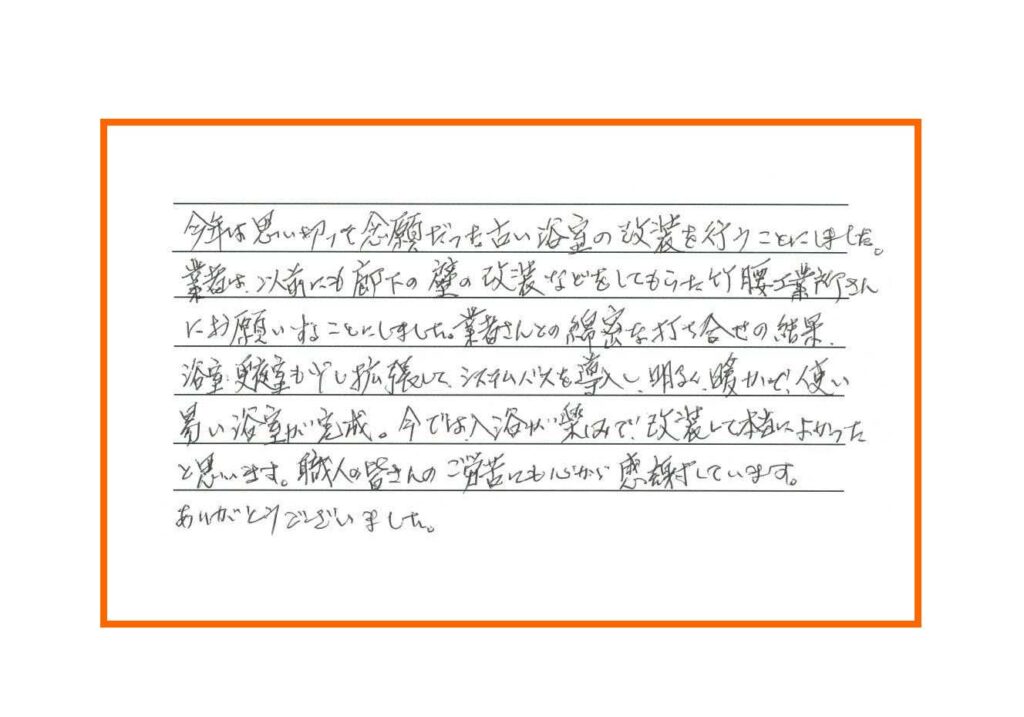 今年は思い切って念願だった古い浴室の改装を行うことにしました。
業者は、以前にも廊下の壁の改装などをしてもらった竹腰工業所さん
にお願いすることにしました。業者さんとの綿密な打ち合せの結果、
浴室、更衣室も少し拡張して、システムバスを導入し、明るく、暖かで、使い
易い浴室が完成。今では、入浴が楽しみで、改装して本当によかった
と思います。職人の皆さんのご労苦にも心から感謝しています。
ありがとうございました。